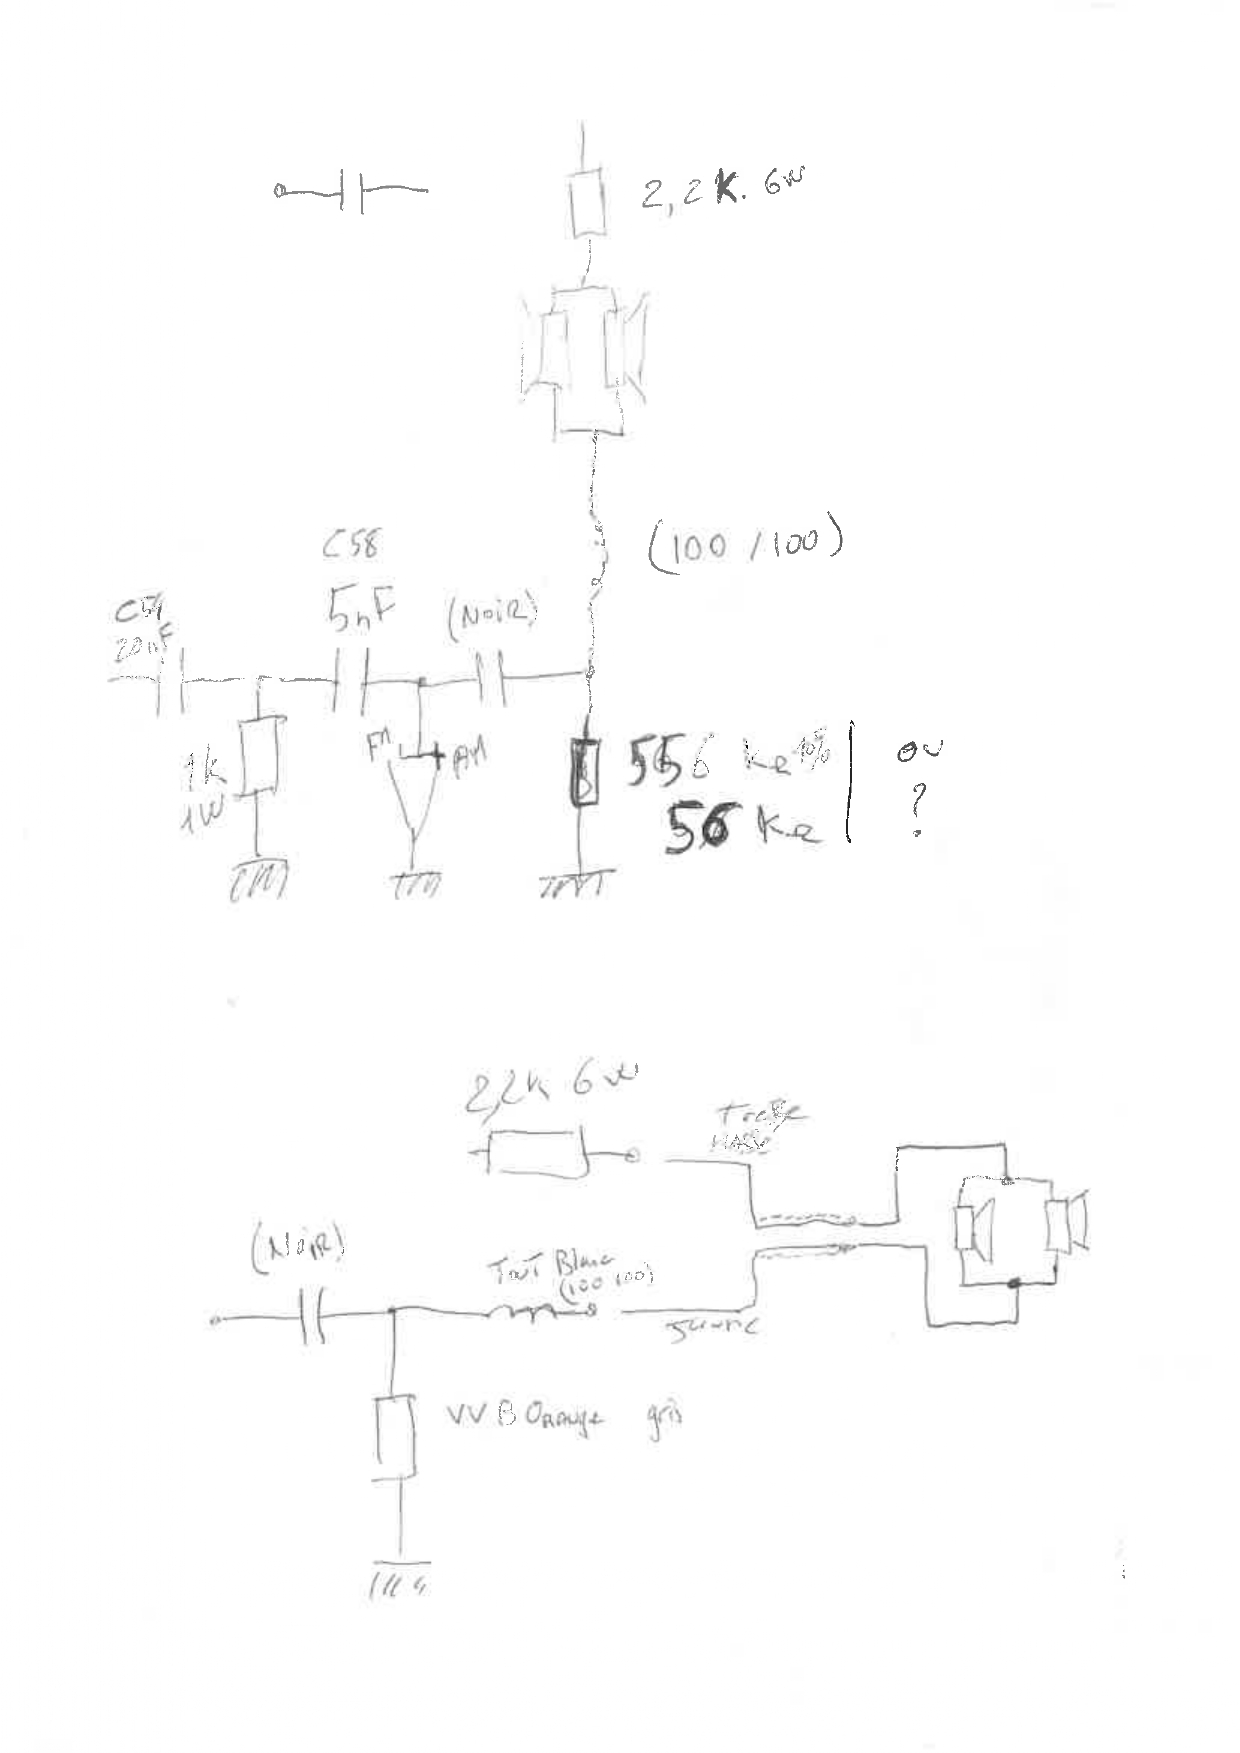 2,2 K. 6W
(100 / 100)
C58
5nF
(NoiR)
C59
20nF
1k
1W
FM
AM
556 KΩ 10%
56 KΩ
ou
?
2,2k 6W
Tresse
MASSE
(Noir)
TouT Blanc
(100 100)
VVB Orange gris